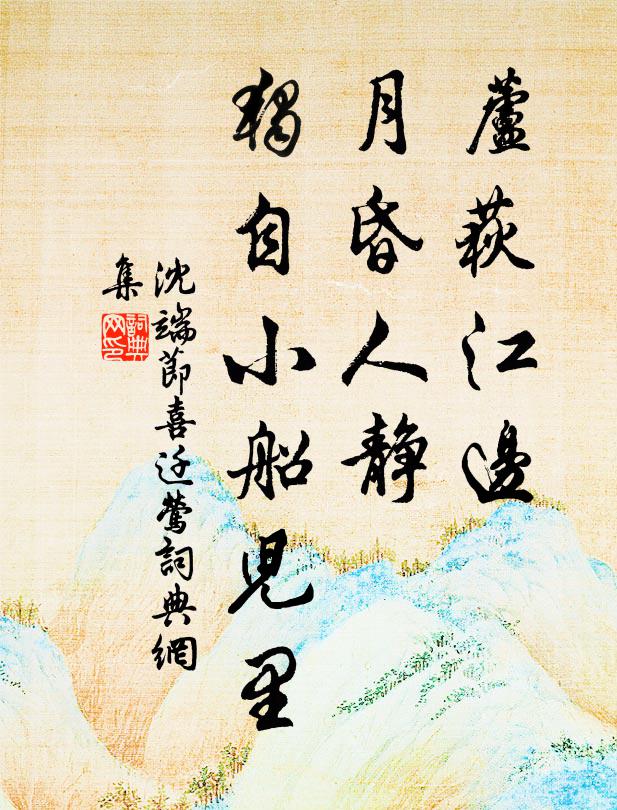 蘆荻江邊
月昏人静
獨自小船兒里
沈端節喜迁鶯詞典網
集
詞典網印